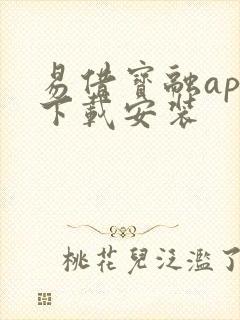 易借寶融ap
下載安装
桃花兒泛濫了